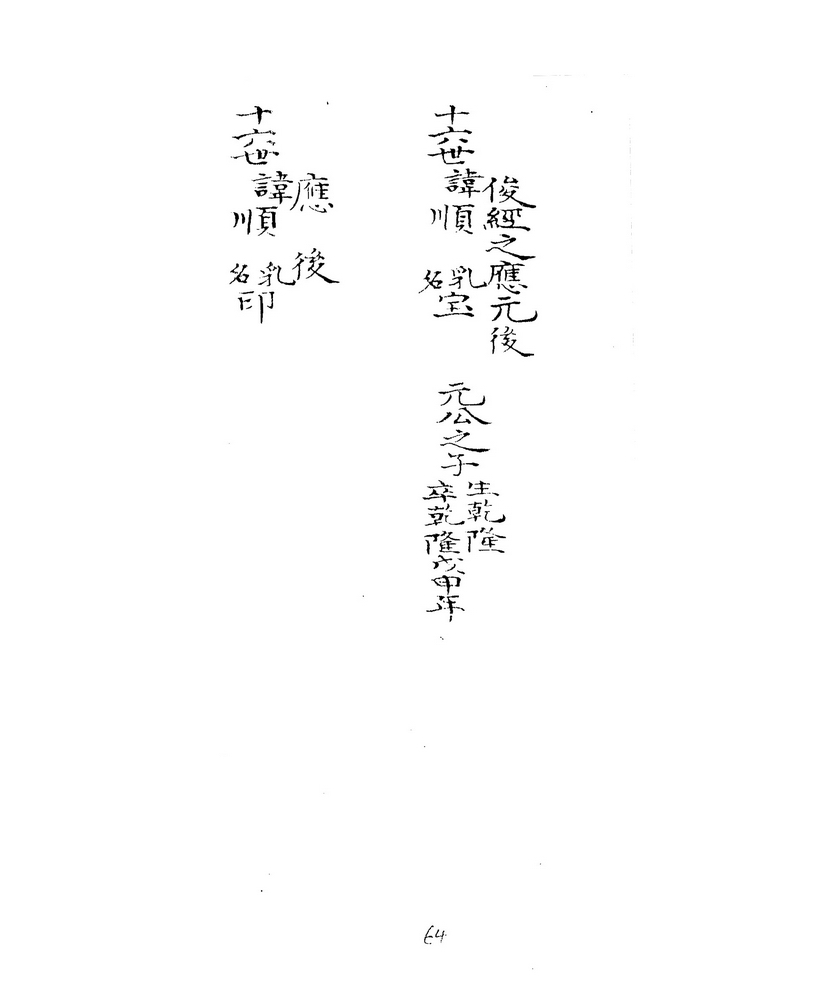 俊經之應元後
十六世諱順乳名宝
元公之子
生乾隆
卒乾隆戊申年
應後
十六世諱順乳名印
64